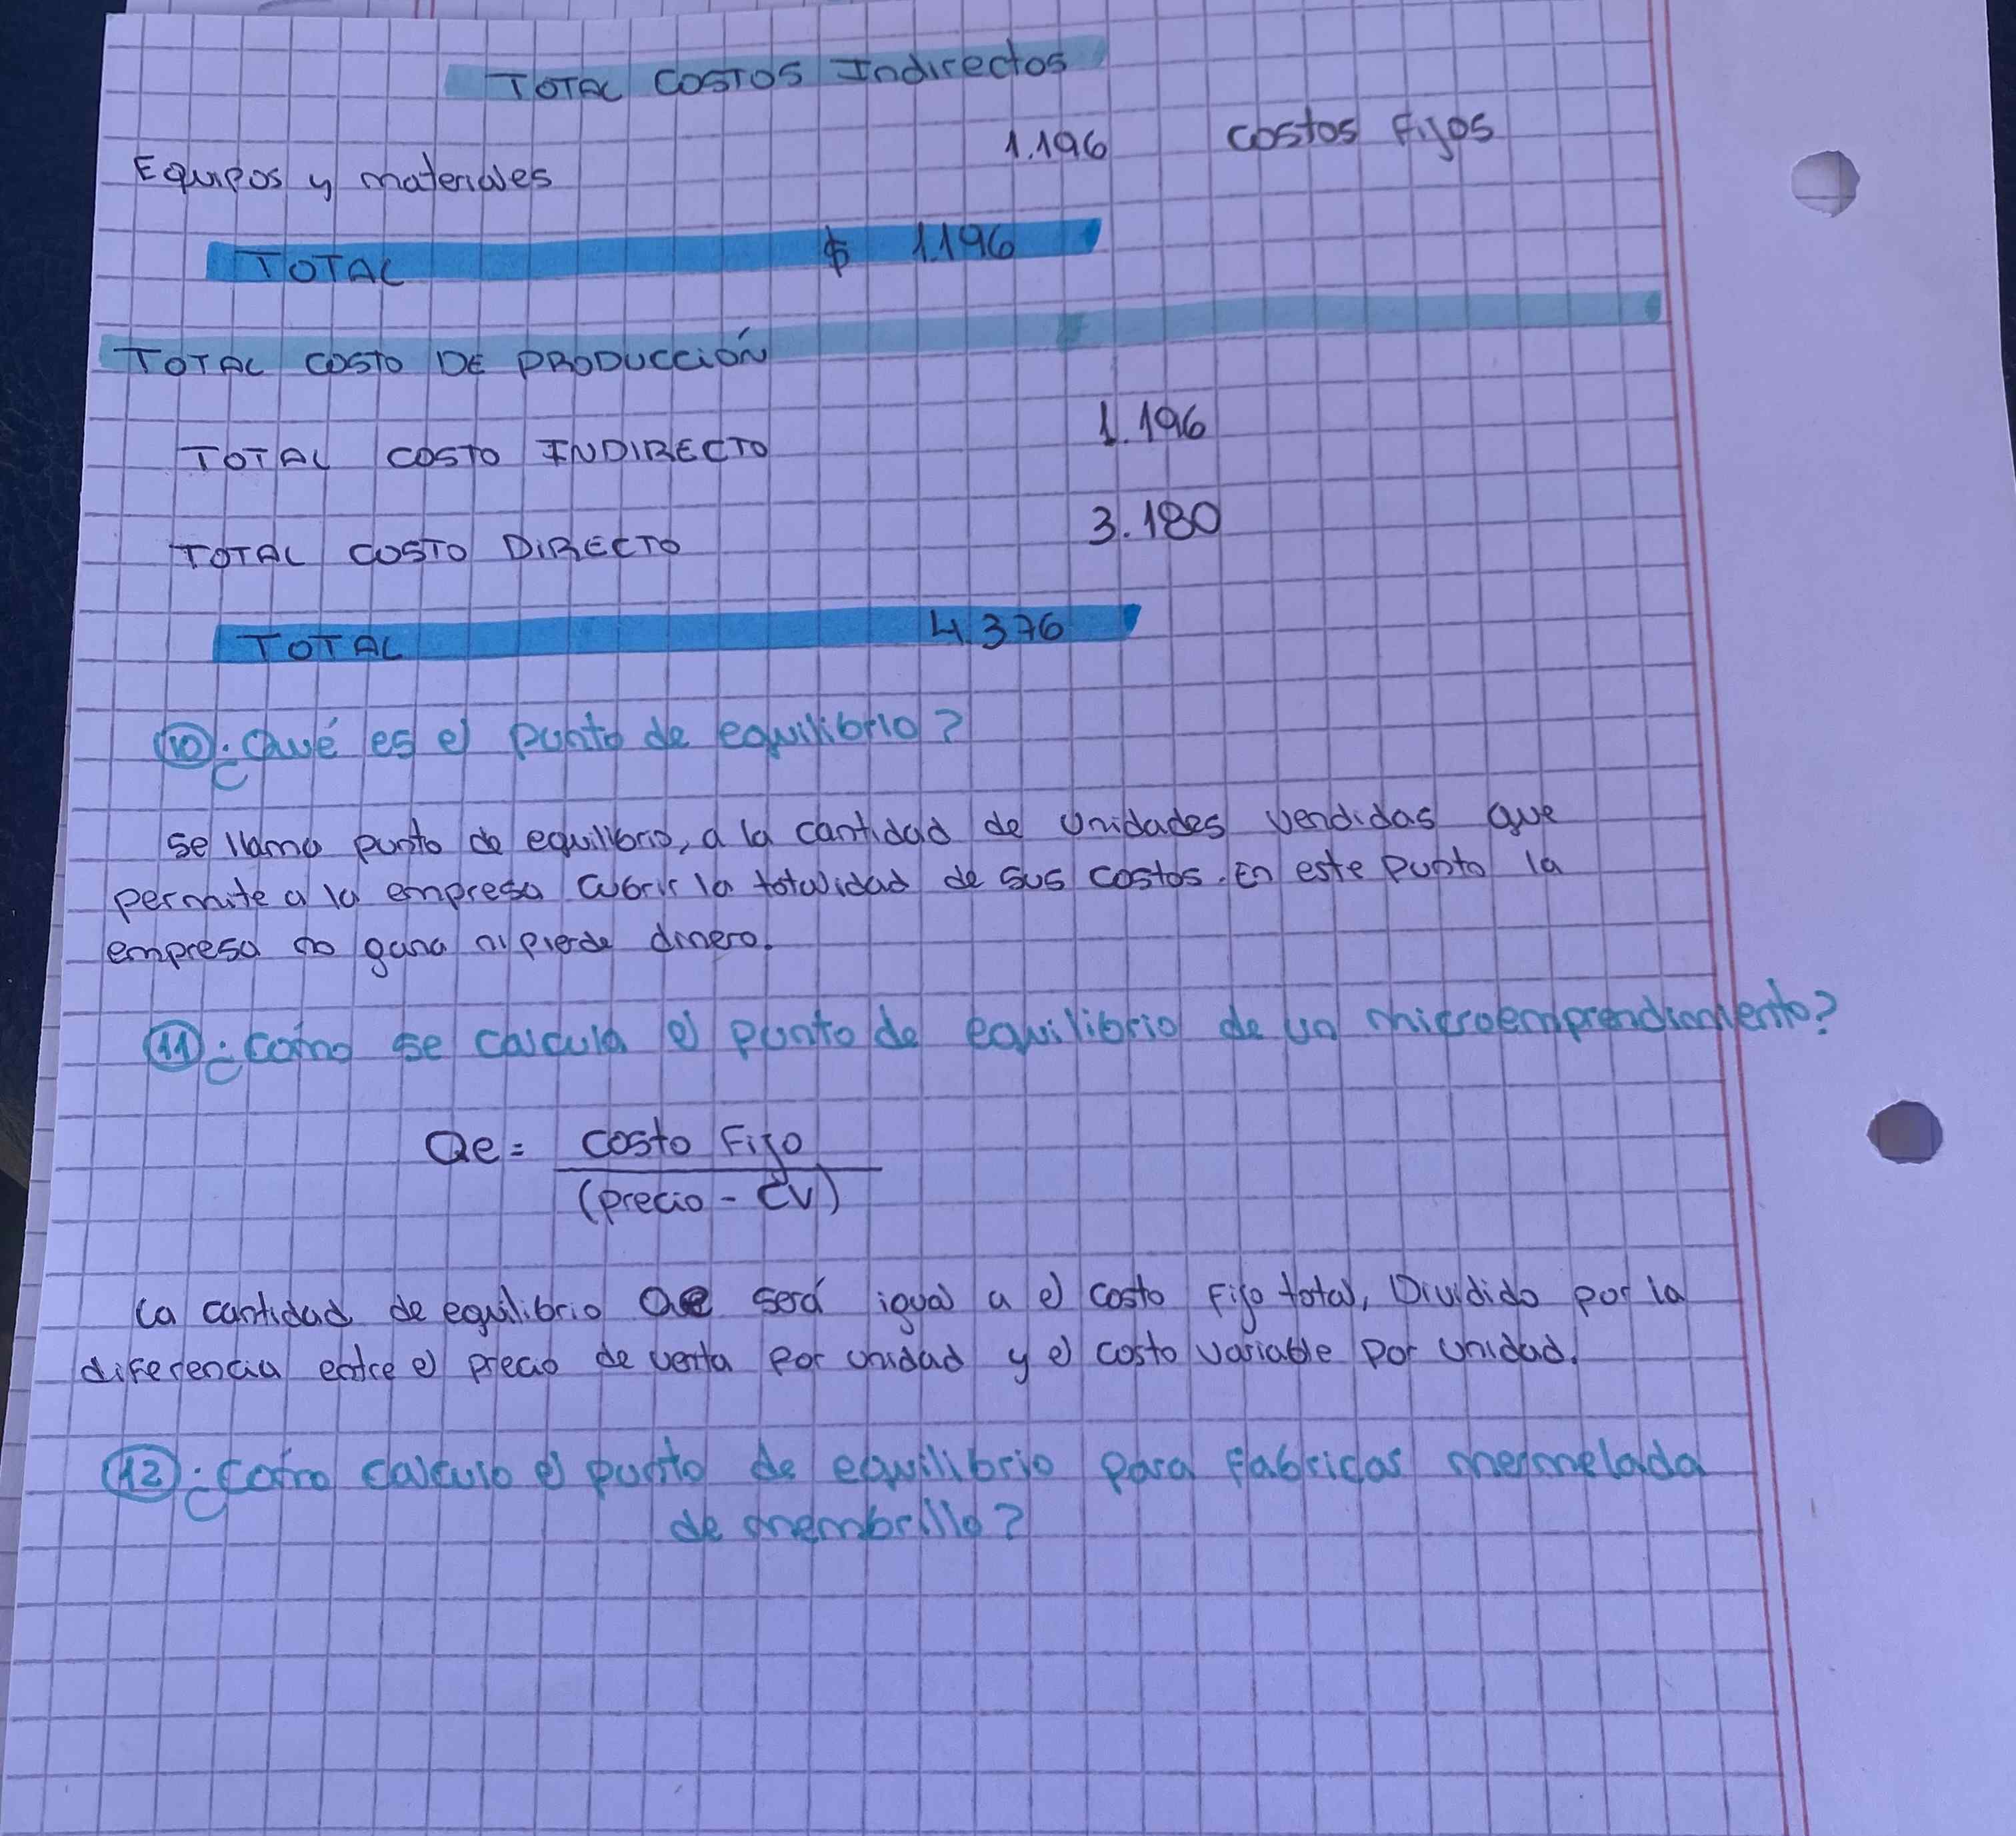 TOTAL COSTOS Indirectos
Equipos y materiales 1.196 costos fijos
TOTAL $ 1.196
TOTAL COSTO DE PRODUCCIÓN
TOTAL COSTO INDIRECTO 1.196
TOTAL COSTO DIRECTO 3.180
TOTAL 4.376
10 ¿Qué es el punto de equilibrio?
se llama punto de equilibrio, a la cantidad de unidades vendidas que
permite a la empresa cubrir la totalidad de sus costos. En este punto la
empresa no gana ni pierde dinero.
11 ¿Cómo se calcula el punto de equilibrio de un microemprendimiento?
Qe = Costo Fijo
(precio - CV)
La cantidad de equilibrio Qe será igual a el costo Fijo total, Dividido por la
diferencia entre el precio de venta por unidad y el costo variable por unidad.
12 ¿Cómo calculo el punto de equilibrio para fabricar mermelada
de membrillo?